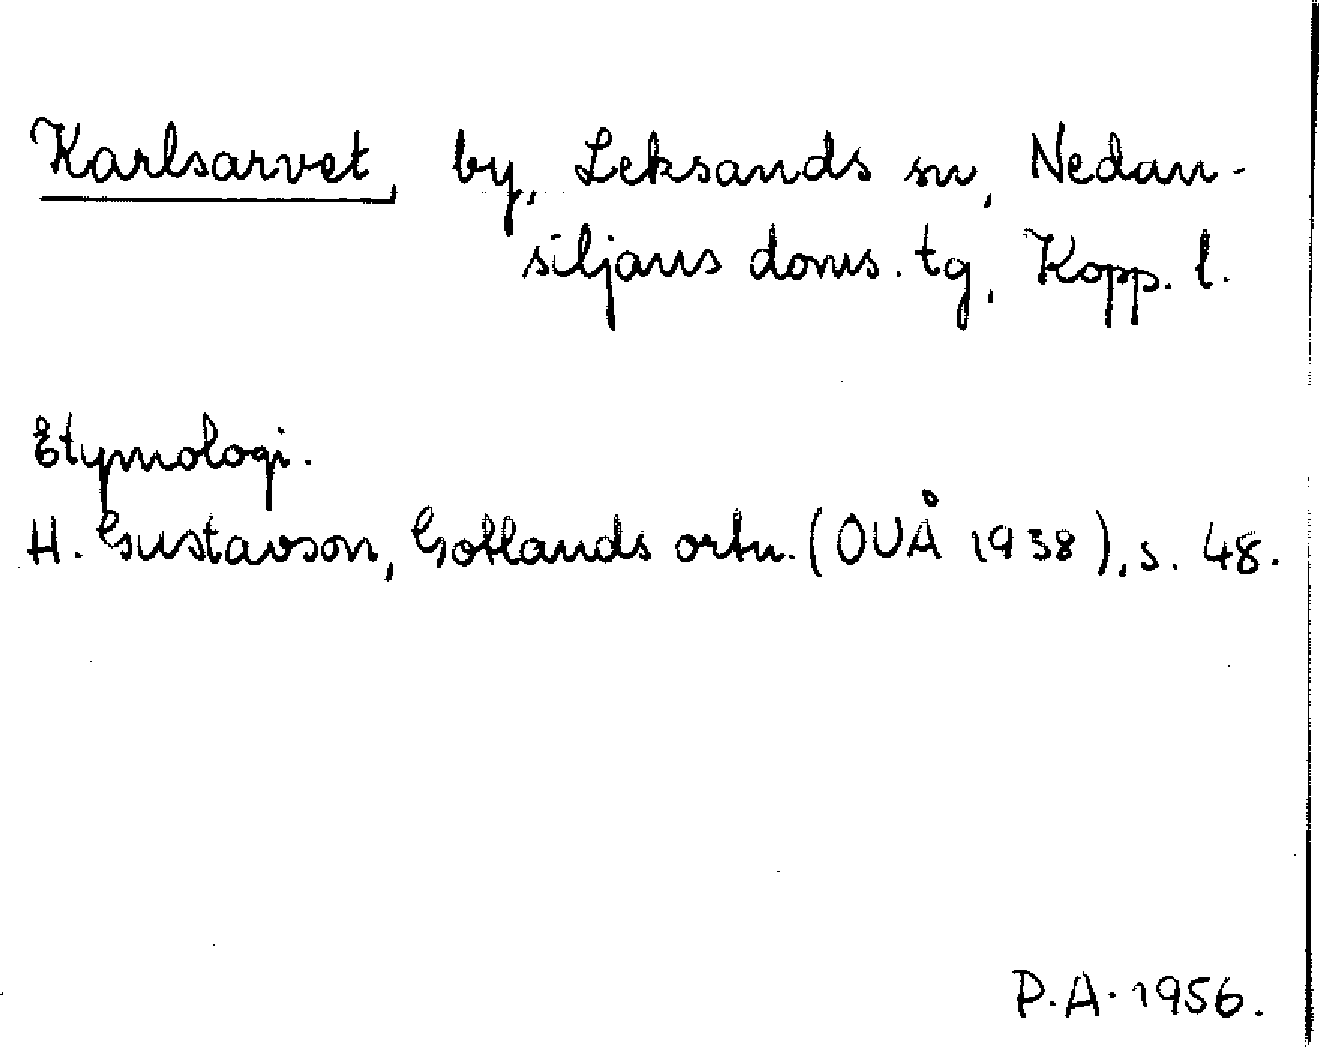 Karlsarvet, by, Leksands sn, Nedan-
siljans doms. tg, Kopp. l.
Etymologi.
H. Gustavson, Gotlands ortn. (OUÅ 1938), s. 48.
P.A. 1956.